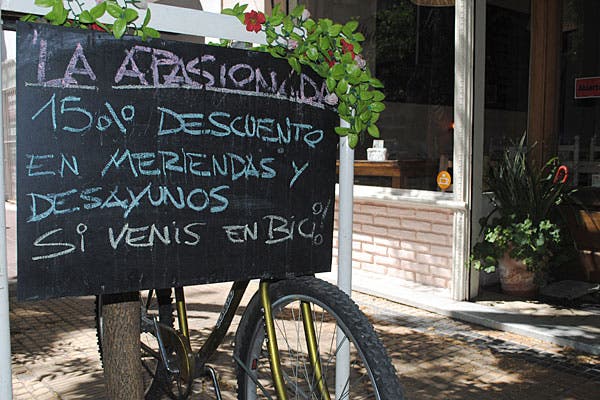 LA APASIONADA
15% DESCUENTO
EN MERIENDAS Y
DESAYUNOS
SI VENIS EN BICI %